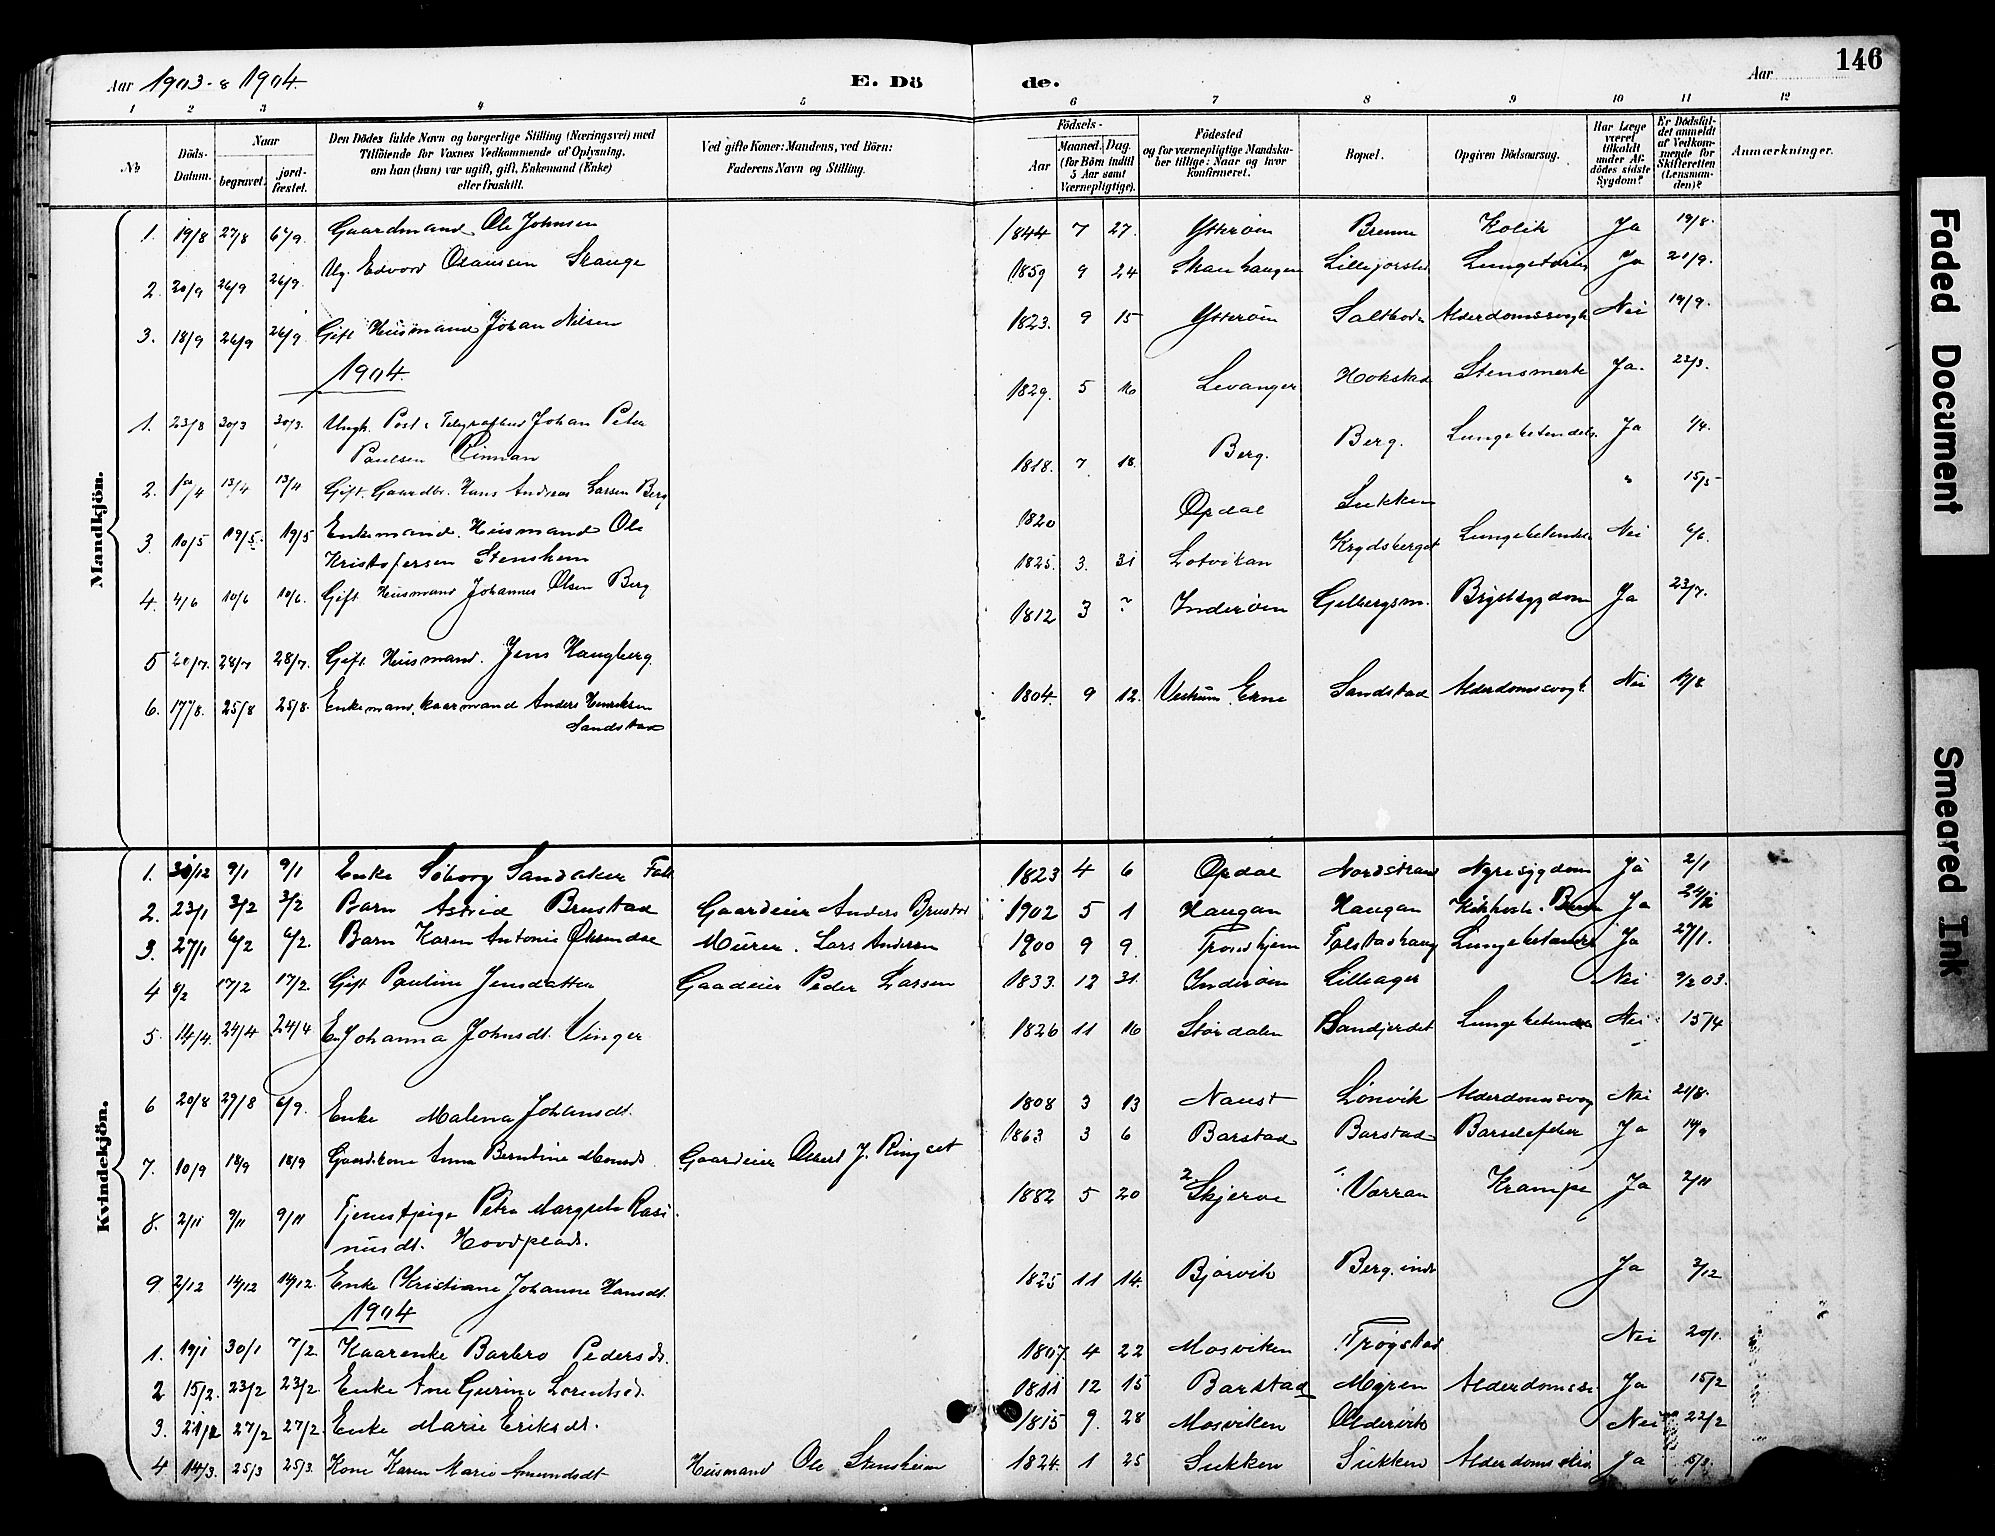 Aar 1903-8 1904.
E. Dö
de.
Aar
146
1 2 3 4 5 6 7 8 9 10 11 12
No
Döds-Datum.
Naar
begravet. jord-fæstet.
Den Dödes fulde Navn og borgerlige Stilling (Næringsvei) med
Tilföiende for Voxnes Vedkommende af Oplysning,
om han (hun) var ugift, gift, Enkemand (Enke)
eller fraskilt.
Ved gifte Koner: Mandens, ved Börn:
Faderens Navn og Stilling.
Födsels-
Aar
Maaned. Dag.
(for Börn indtil
5 Aar samt
Værnepligtige).
Födested
og for værnepligtige Mandska-
ber tillige: Naar og hvor
konfirmeret.
Bopæl.
Opgiven Dödsaarsag.
Har Læge
været
tilkaldt
under Af-
dödes sidste
Sygdom?
Er Dödsfal-
det anmeldt
af Vedkom-
mende for
Skifteretten
(Lensman-
den)?
Anmærkninger.
Mandkjön.
1. 19/8 27/8 6/9. Gaardmand Ole Johnsen 1844 7 27. Ytterøen Brenne Kolik Ja 19/8.
2. 20/9 26/9 26/9. Ug. Edvard Olaussen Skauge 1859 9 24 Skanhaugen Lillejorstad Ja 21/9.
3. 18/9 26/9 26/9 Gift Husmand Johan Nilsen 1823. 9 15 Ytterøen Alderdomssvagh Nei 19/9.
1904.
1. 23/8 30/3 30/3. Ungk. Post & Telegrafbud Johan Peter
Paulsen Rinnan 1829. 5 16 Levanger Hokstad Stensmerte Ja. 23/3.
2. 13/4 13/4 Gift. Gaardbr. Hans Andreas Larsen Berg 1818. 7 18. Berg. Berg. Lungebetendels. Ja 1/4.
3. 10/5 19/5. 19/5 Enkemand. Husmand Ole
Kristofersen Stenshem 1820 Opdal Sukken " 15/5
4. 4/6 10/6 10/6. Gift. Husmand Johannes Olsen Berg 1825. 3. 31 Lotvikan Krydsberget Lungebetendels Nei 6/6.
5 20/7. 28/7 28/7. Gift. Husmand. Jens Haugberg. 1812 3 ? Inderøen Gelbergsm. Brystsygdom Ja 23/7.
6. 17/8. 25/8 25/8. Enkemand, kaarmand Anders Henriksen
Sandstad 1804. 9 12. Vestrum Ekne Sandstad Alderdomssvagh. Nei
Kvindekjön.
1. 9/1 9/1 Enke Søborg Sandaker 1823 4 6 Opdal Nordstrand Nyresygdom Ja 2/1
2. 23/1 3/2 3/2 Barn Astrid Brustad Gaardeier Anders Brustad 1902 5 1 Haugan Haugan Kikhoste. Ja
3. 27/1 6/2 6/2. Barn Karen Antonie Øksendal Murer. Lars Andersen 1900 9 9 Trondhjem Tolstadhaug Lungebetændelse Ja 27/1.
4 8/2 17/2 17/2. Gift Pauline Jensdatter Gaadeier Peder Larsen 1833. 12 31. Inderøen Lilleager Nei 9/2 03.
5. 14/4. 24/4 24/4 E. Johanna Johnsdt. Vinger 1826 11 16 Stordalen Sandjerdet Lungebetendels Nei 15/4
6 20/8 29/8 6/9. Enke Malena Johansdt. 1808 3 13 Naust Lønvik Alderdomssvag Nei 21/8.
7. 10/9 18/9 18/9 Gaardkone Anna Berntine Gaardeier Albert J. Ringset 1863 3 6 Barstad Barstad Barselfeber Ja
8. 2/11 9/11 9/11 Tjenestpige Petra Margrete Rasi-
nusdt. Hovdplads. 1882 5 20 Skjerve Værran Krampe Ja 2/11
9 2/12 14/12 14/12. Enke Kristiane Johanne Hansdt. 1825 11 14. Bjørvik Berg. ind Ja 3/12
1904
1. 19/1 30/1 7/2 Kaarenke Barbro Pedersdt. 1807. 4 22 Mosviken Trøgstad Nei 20/1.
2 15/2. 23/2 23/2 Enke Ane Gurine Lorentsdt. 1811 12 15 Barstad Myren Ja 15/2
3. 21/2 27/2 27/2. Enke Marie Eriksdt. 1815 9. 28 Mosviken Aldervik Nei 22/2
4 14/3. 25/3 25/3. Kone Karen Marie Amundsdt Husmand Ole Stensheim 1824. 1 25 Sukken Sukken Ja
Faded Document
Smeared Ink